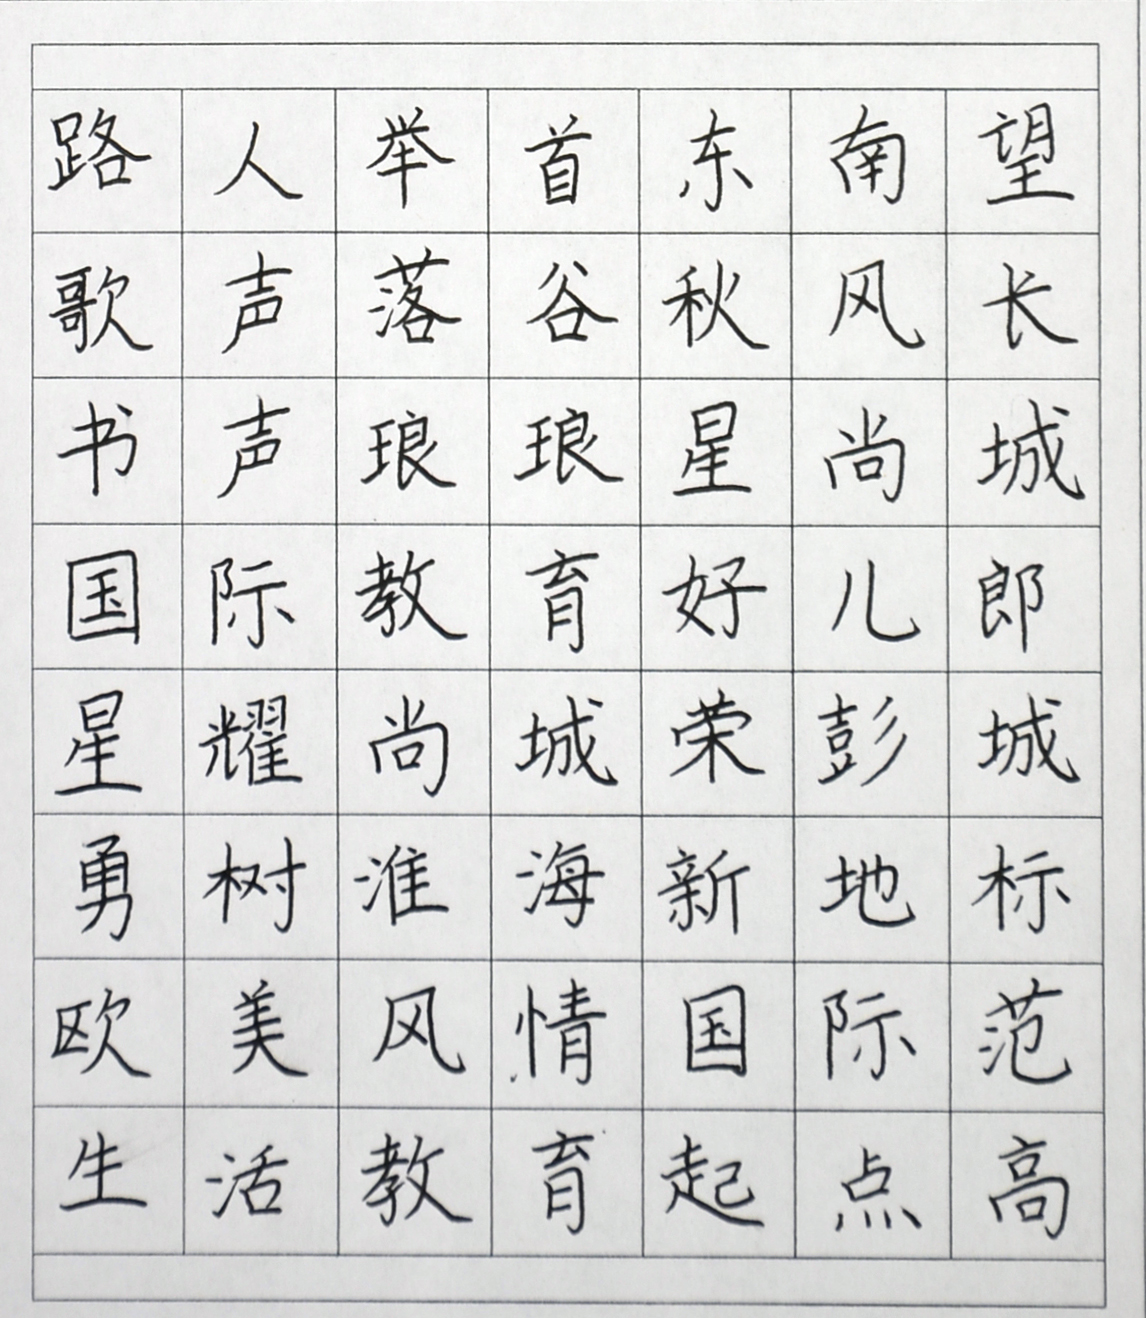 路人举首东南望
歌声落谷秋风长
书声琅琅星尚城
国际教育好儿郎
星耀尚城荣彭城
勇树淮海新地标
欧美风情国际范
生活教育起点高